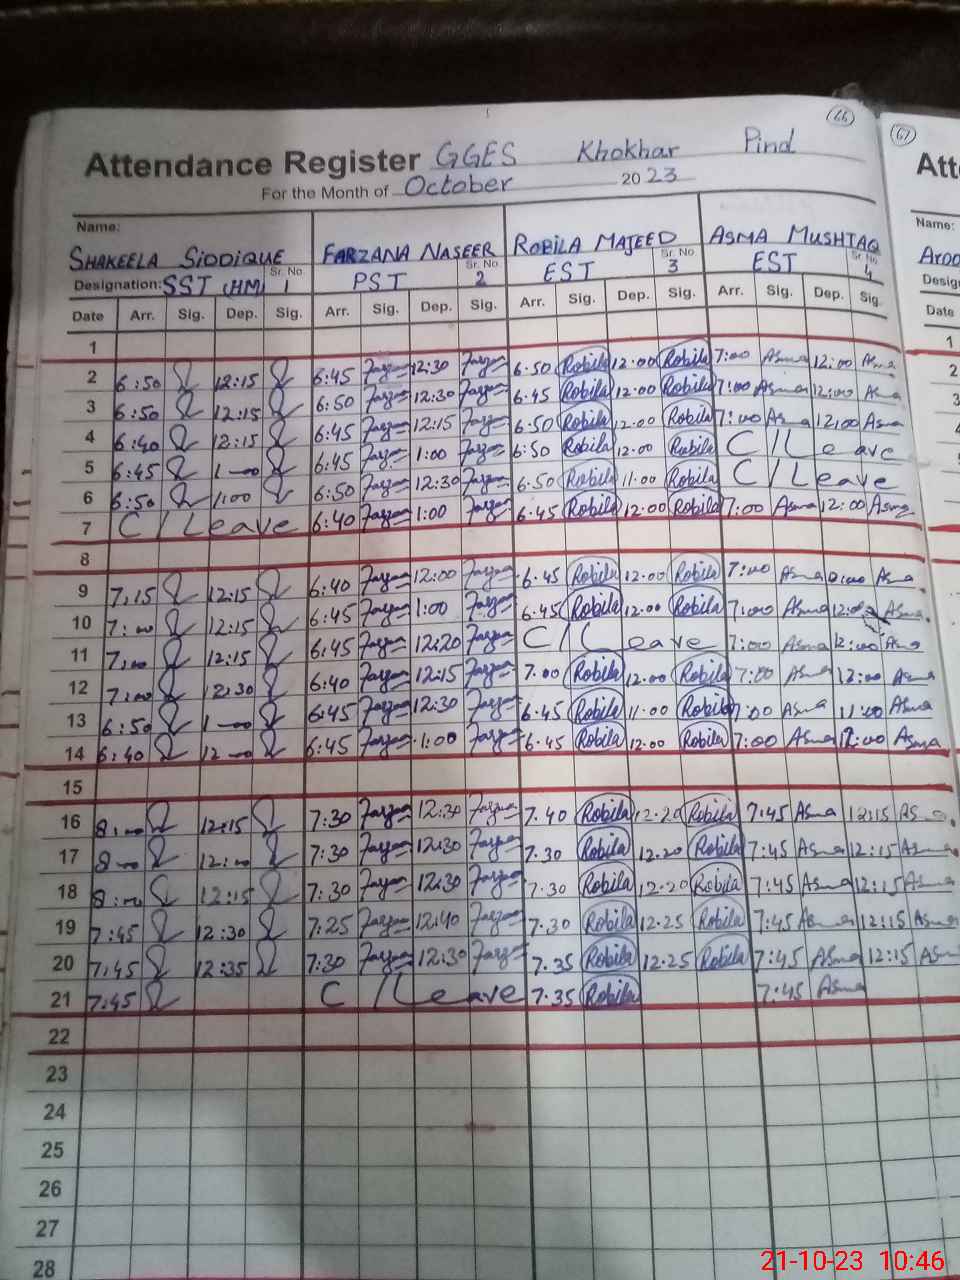 66
67
Attendance Register GGES Khokhar Pind
For the Month of October 2023
Name:
SHAKEELA SIDDIQUE FARZANA NASEER ROBILA MAJEED ASMA MUSHTAQ
Designation: SST (HM) Sr. No. 1 PST Sr. No. 2 EST Sr. No. 3 EST Sr. No. 4
Date Arr. Sig. Dep. Sig. Arr. Sig. Dep. Sig. Arr. Sig. Dep. Sig. Arr. Sig. Dep. Sig.
1
2 6:50 12:15 6:45 12:30 6.50 Robila 12.00 Robila 7:00 Asma 12:00 Asma
3 6:50 12:15 6:50 12:30 6.45 Robila 12.00 Robila 7:00 Asma 12:00 Asma
4 6:40 12:15 6:45 12:15 6.50 Robila 12.00 Robila 7:00 Asma 12:00 Asma
5 6:45 1-00 6:45 1:00 6.50 Robila 12.00 Robila C/Leave
6 6:50 1:00 6:50 12:30 6.50 Robila 11:00 Robila C/Leave
7 C/Leave 6:40 1:00 6.45 Robila 12:00 Robila 7:00 Asma 12:00 Asma
8
9 7:15 12:15 6:40 12:00 6.45 Robila 12.00 Robila 7:00 Asma Asma
10 7:00 12:15 6:45 1:00 6.45 Robila 12.00 Robila 7:00 Asma Asma
11 7:00 12:15 6:45 12:20 C/Leave 7:00 Asma 12:00 Asma
12 7:00 12:30 6:40 12:15 7.00 Robila 12.00 Robila 7:00 Asma 12:00 Asma
13 6:50 1-00 6:45 12:30 6.45 Robila 11.00 Robila 7:00 Asma 11:00 Asma
14 6:40 12-00 6:45 1:00 6.45 Robila 12.00 Robila 7:00 Asma 12:00 Asma
15
16 8:00 12:15 7:30 12:30 7.40 Robila 12.20 Robila 7:45 Asma 12:15 Asma
17 8-00 12:00 7:30 12:30 7.30 Robila 12.20 Robila 7:45 Asma 12:15 Asma
18 8:00 12:15 7:30 12:30 7.30 Robila 12.20 Robila 7:45 Asma 12:15 Asma
19 7:45 12:30 7:25 12:40 7.30 Robila 12.25 Robila 7:45 Asma 12:15 Asma
20 7:45 12:35 7:30 12:30 7.35 Robila 12.25 Robila 7:45 Asma 12:15 Asma
21 7:45 C/Leave 7.35 Robila 7:45 Asma
22
23
24
25
26
27
28
Att
Name:
Aroo
Desig
Date
1
2
21-10-23 10:46